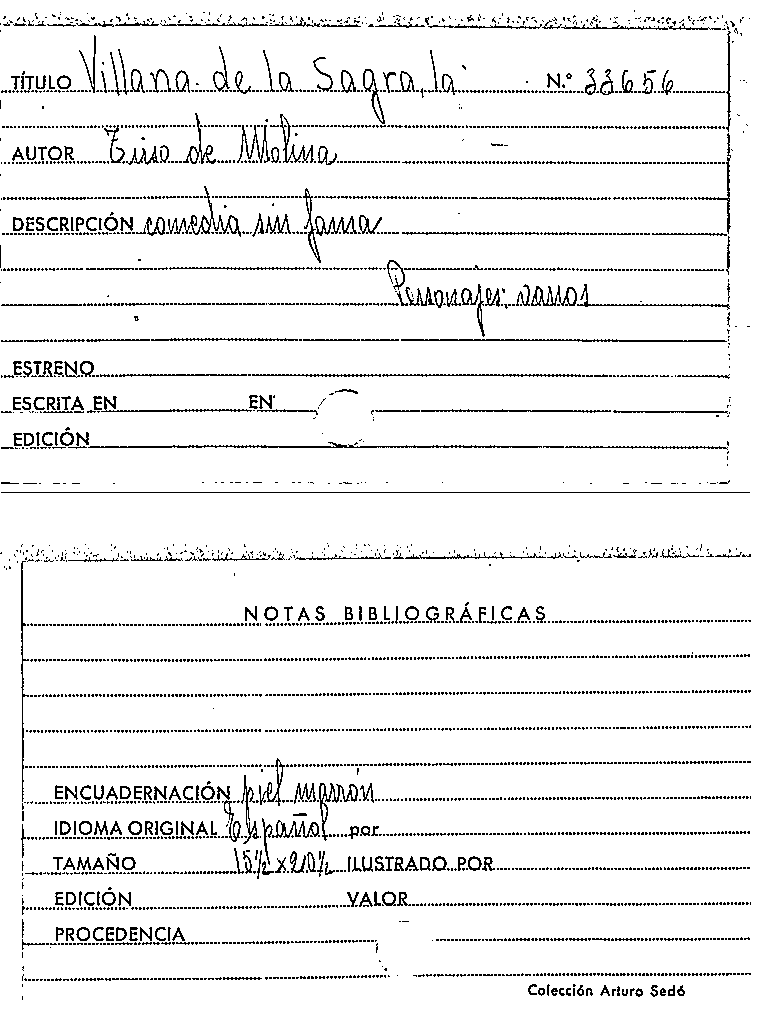 TÍTULO Villana de la Sagra, la N.º 33656
AUTOR Tirso de Molina
DESCRIPCIÓN comedia sin fama
Personajes: varios
ESTRENO
ESCRITA EN EN
EDICIÓN
NOTAS BIBLIOGRÁFICAS
ENCUADERNACIÓN piel marrón
IDIOMA ORIGINAL Español por
TAMAÑO 15½ x 20½ ILUSTRADO POR
EDICIÓN VALOR
PROCEDENCIA
Colección Arturo Sedó